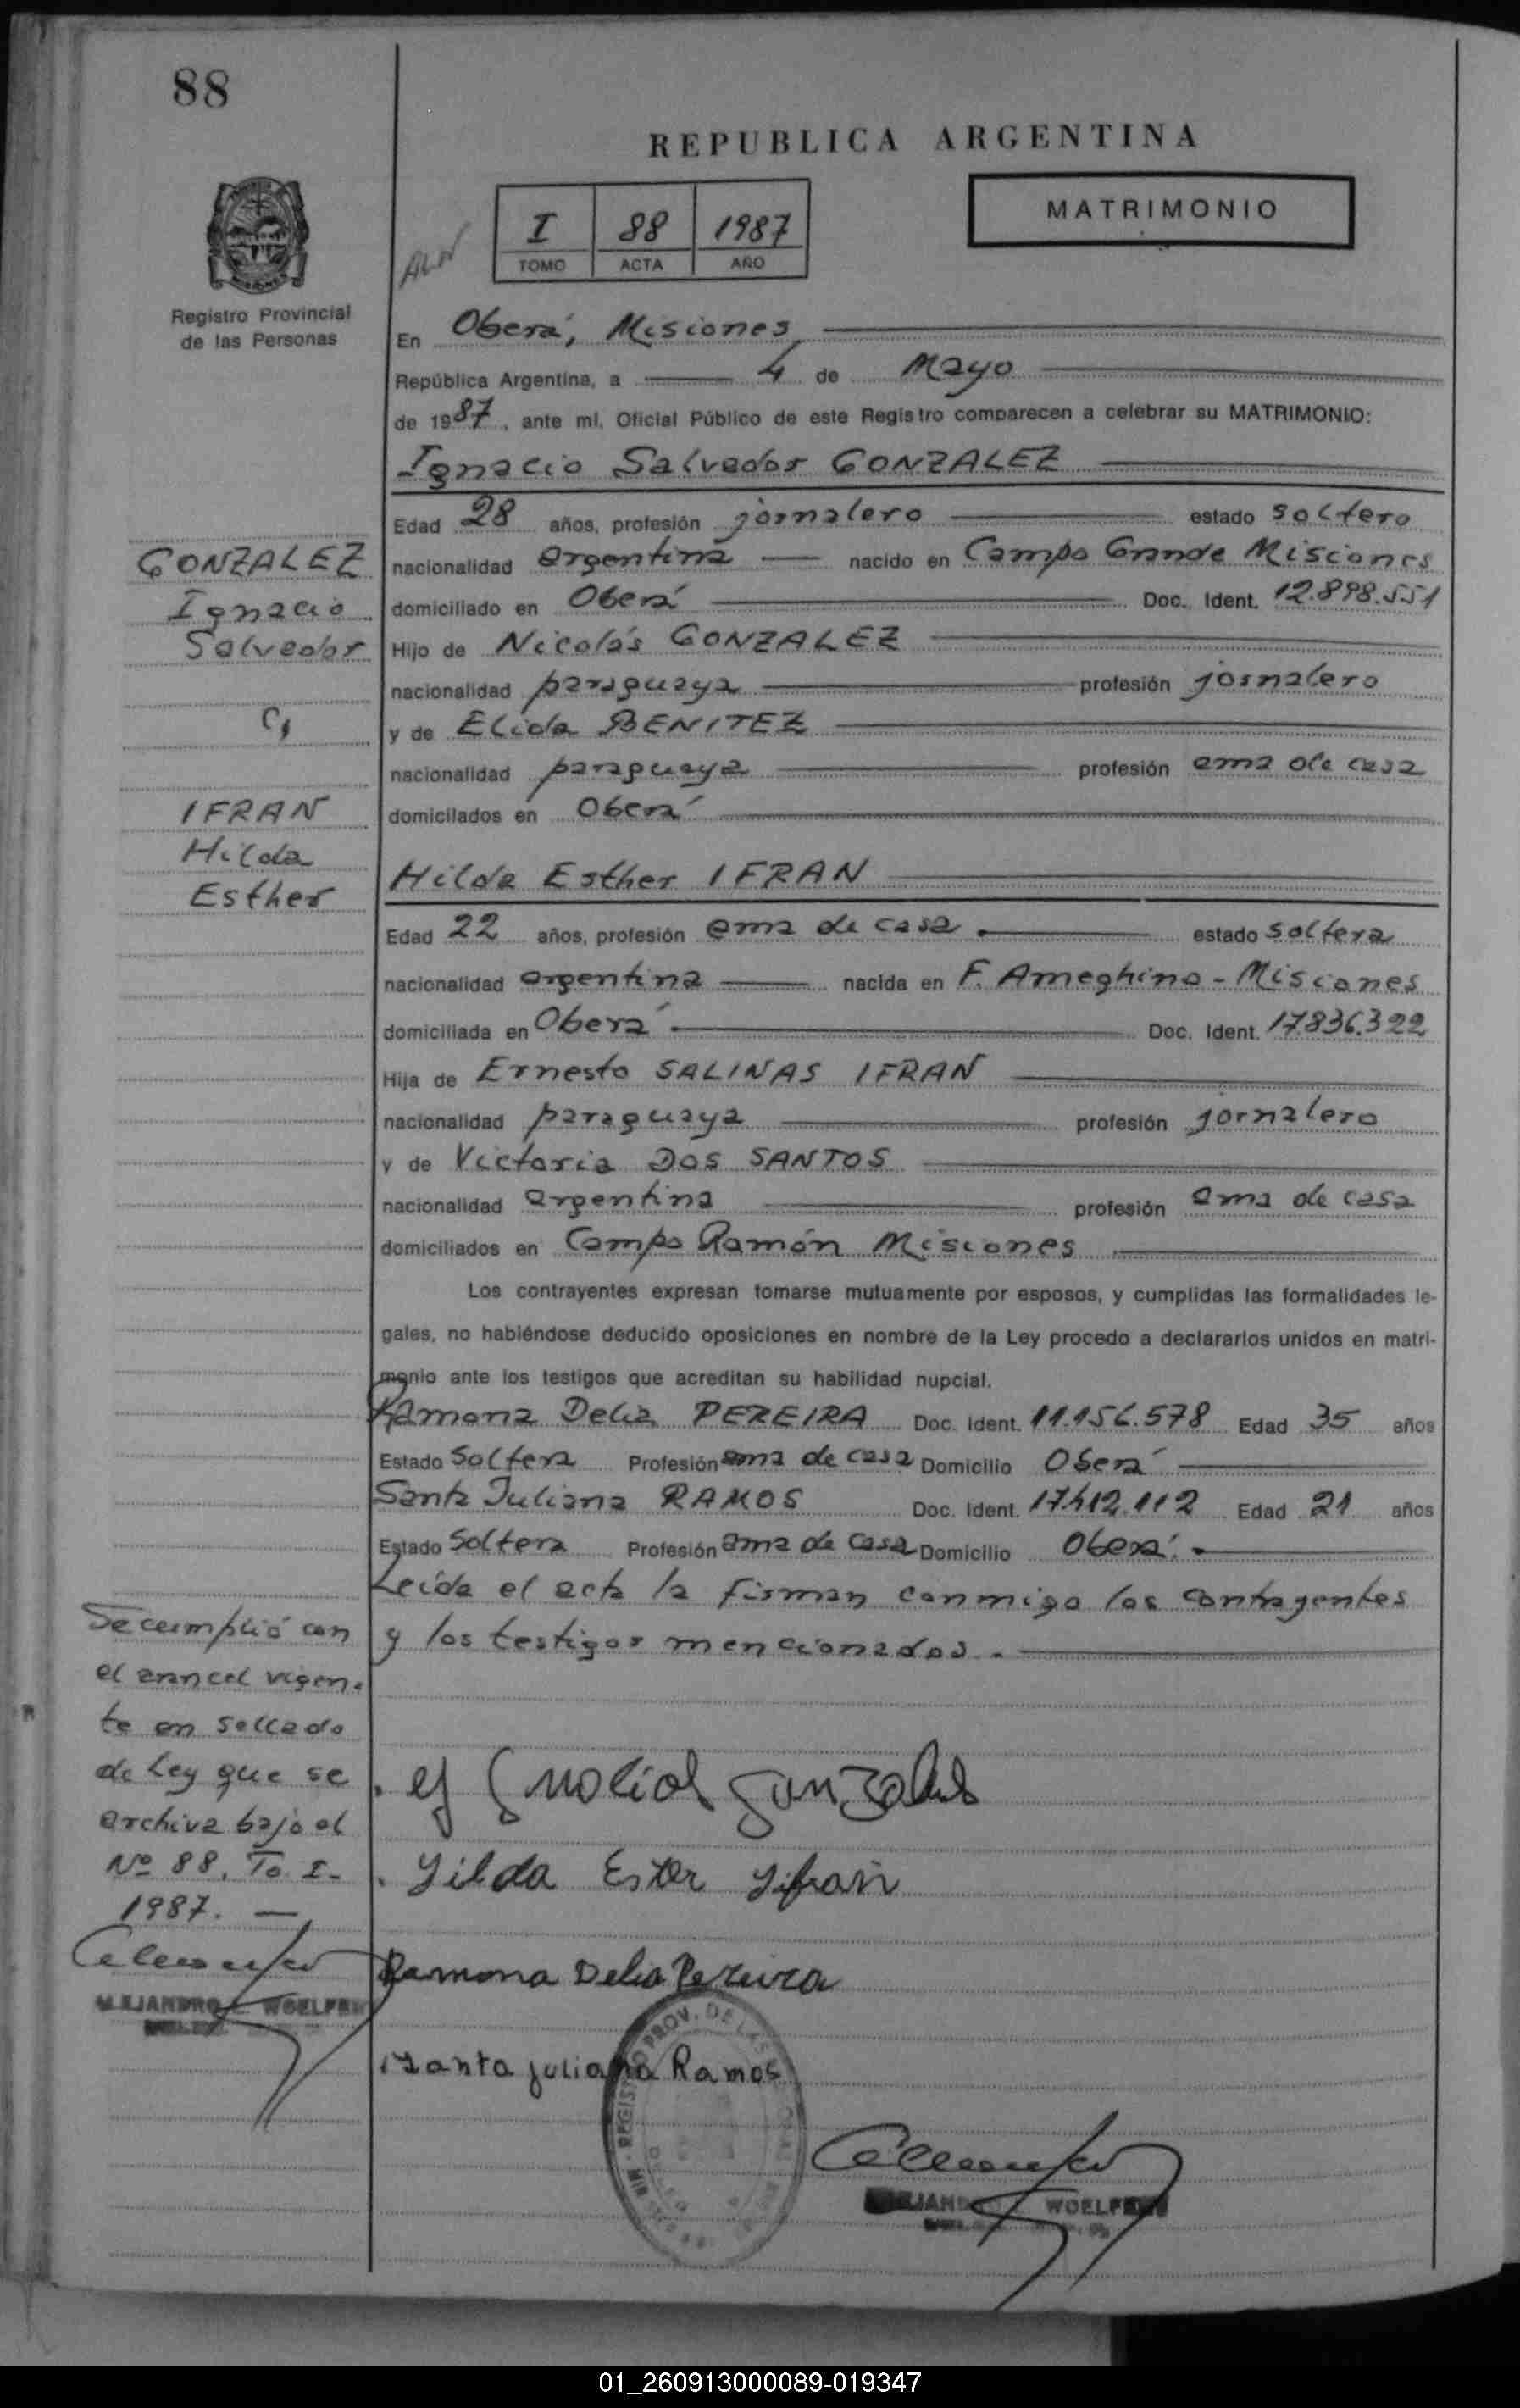 88
REPUBLICA ARGENTINA
I 88 1987
TOMO ACTA AÑO
MATRIMONIO
Registro Provincial
de las Personas
En Oberá, Misiones
República Argentina, a 4 de Mayo
de 1987, ante mi, Oficial Público de este Registro comparecen a celebrar su MATRIMONIO:
Ignacio Salvador GONZALEZ
Edad 28 años, profesión jornalero estado soltero
nacionalidad argentina nacido en Campo Grande Misiones
domiciliado en Oberá Doc. Ident. 12.898.551
Hijo de Nicolás GONZALEZ
nacionalidad paraguaya profesión jornalero
y de Elida BENITEZ
nacionalidad paraguaya profesión ama de casa
domicilados en Oberá
GONZALEZ
Ignacio
Salvador
c/
IFRAN
Hilda
Esther
Hilda Esther IFRAN
Edad 22 años, profesión ama de casa. estado soltera
nacionalidad argentina nacida en F. Ameghino - Misiones
domiciliada en Oberá Doc. Ident. 17.836.322
Hija de Ernesto SALINAS IFRAN
nacionalidad paraguaya profesión jornalero
y de Victoria DOS SANTOS
nacionalidad argentina profesión ama de casa
domiciliados en Campo Ramón Misiones
Los contrayentes expresan tomarse mutuamente por esposos, y cumplidas las formalidades le-
gales, no habiéndose deducido oposiciones en nombre de la Ley procedo a declararlos unidos en matri-
monio ante los testigos que acreditan su habilidad nupcial.
Ramona Delia PEREIRA Doc. Ident. 11.156.578 Edad 35 años
Estado Soltera Profesión ama de casa Domicilio Oberá
Santa Juliana RAMOS Doc. Ident. 17.412.112 Edad 21 años
Estado Soltera Profesión ama de casa Domicilio Oberá.
Leída el acta la firman conmigo los contrayentes
y los testigos mencionados.
Se cumplió con
el arancel vigen-
te en sellado
de Ley que se
archiva bajo el
Nº 88. To. I-
1987.
ALEJANDRO WOELFERT
Gonzales
Yilda Ester Yifran
Ramona Delia Pereira
Santa Juliana Ramos
REGISTRO PROV. DE LAS
WOELFERT
01_260913000089-019347